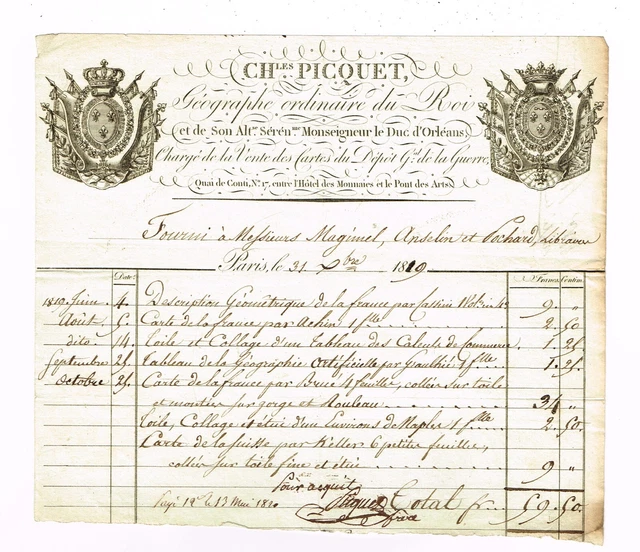 CH.LES PICQUET,
Géographe ordinaire du Roi
et de Son Alt.sse Sérén.me Monseigneur le Duc d'Orléans,
Chargé de la Vente des Cartes du Dépôt G.al de la Guerre,
Quai de Conti, N.º 17, entre l'Hôtel des Monnaies et le Pont des Arts.
Fourni à Messieurs Magimel, Anselin et Pochard, Libraires
Paris, le 31 Xbre 1819
Dates Francs Centim.
1819 Juin 4 Description Géométrique de la france par Cassini 1 Vol. in 4º 9 "
Août 5 Carte de la france par Achin 1 flle 2. 50
dito 14 Toile et Collage d'un Tableau des Calculs de Commerce 1. 25
Septembre 25 Tableau de la Géographie Artificielle par Gaulthier 1 flle 1. 25
Octobre 25 Carte de la france par Brué 4 feuilles, collée sur toile
et montée sur gorge et Rouleau 34 "
Toile, Collage et étui d'un Environs de Naples 1 flle 2. 50
Carte de la Suisse par Keller 6 petites feuilles,
collée sur toile fine et étui 9 "
Pour acquit
Payé le 13 Mai 1820 Picquet Total fr. 59. 50